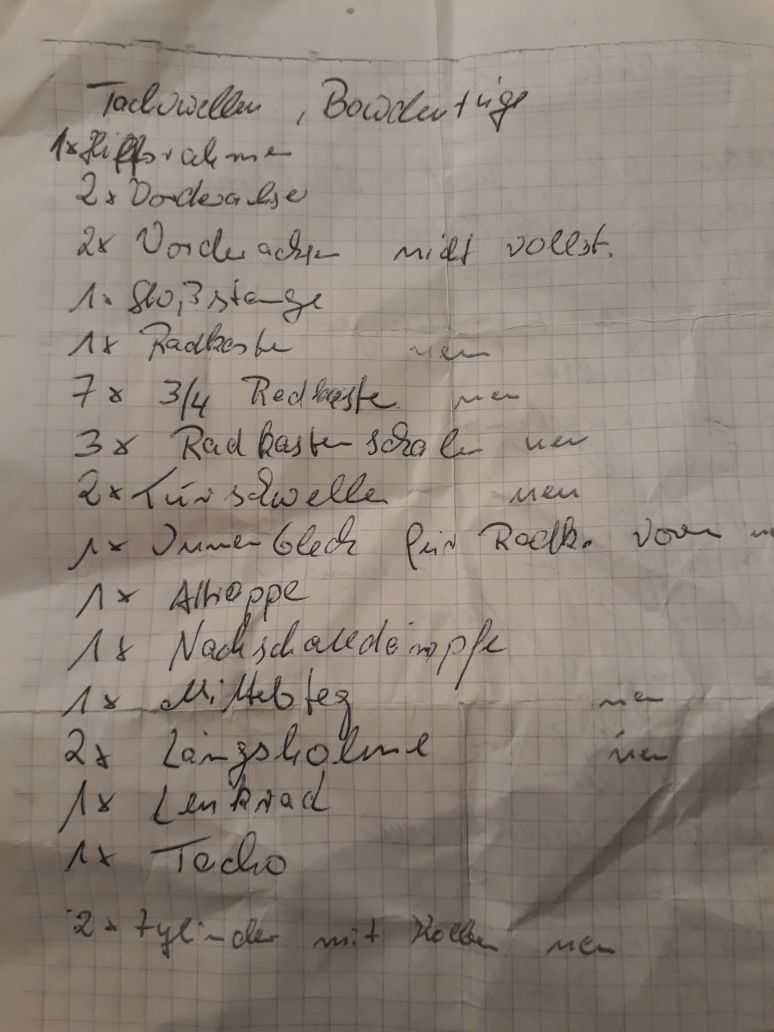 Tachowellen, Bowdenzüge
1x Hilfsrahmen
2x Vorderachse
2x Vorderachsen nicht vollst.
1x Stoßstange
1x Radkasten neu
7x 3/4 Radkasten neu
3x Radkastenschalen neu
2x Türschwellen neu
1x Innenblech für Radk. vorn
1x
1x Nachschalldämpfer
1x Mittelsteg neu
2x Längsholme neu
1x Lenkrad
1x Tacho
2x Zylinder mit Kolben neu